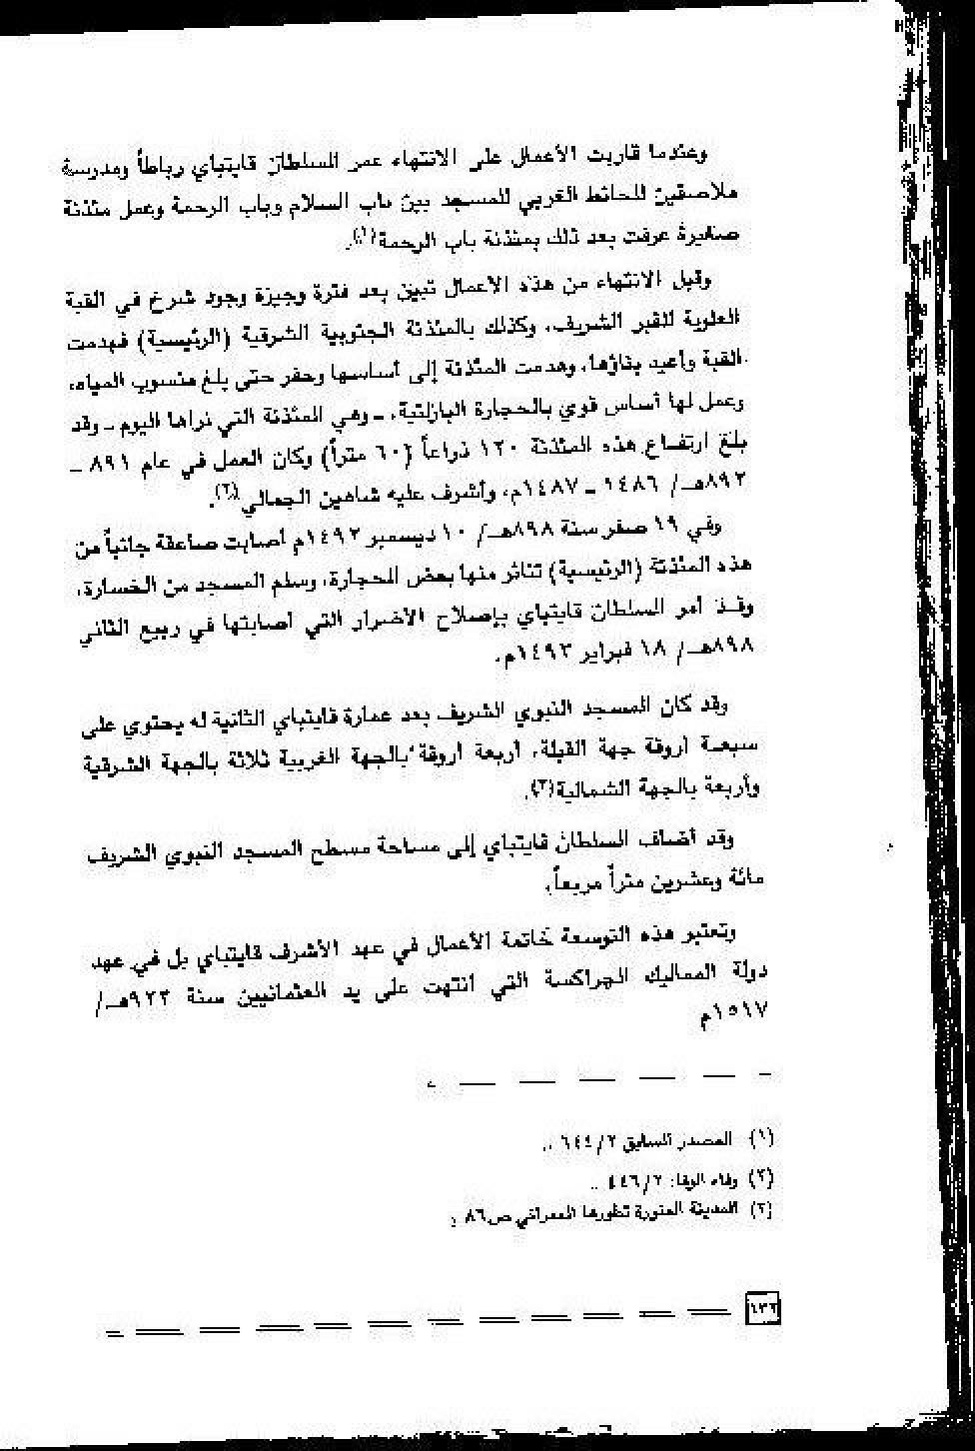 وعندما قاربت الأعمال على الانتهاء عمر السلطان قايتباي رباطاً ومدرسة
ملاصقين للحائط الغربي للمسجد بين باب السلام وباب الرحمة وعمل مئذنة
صغيرة عرفت بعد ذلك بمئذنة باب الرحمة(١).
وقبل الانتهاء من هذه الأعمال تبين بعد فترة وجيزة وجود شرخ في القبة
العلوية للقبر الشريف، وكذلك بالمئذنة الجنوبية الشرقية (الرئيسية) فهدمت
القبة وأعيد بناؤها، وهدمت المئذنة إلى أساسها وحفر حتى بلغ منسوب المياه،
وعمل لها أساس قوي بالحجارة البازلتية، ـ وهي المئذنة التي نراها اليوم ـ وقد
بلغ ارتفاع هذه المئذنة ١٢٠ ذراعاً (٦٠ متراً) وكان العمل في عام ٨٩١ ـ
٨٩٢هـ/ ١٤٨٦ ـ ١٤٨٧م، وأشرف عليه شاهين الجمالي(٢).
وفي ١٩ صفر سنة ٨٩٨هـ/ ١٠ ديسمبر ١٤٩٢م أصابت صاعقة جانباً من
هذه المئذنة (الرئيسية) تناثر منها بعض الحجارة، وسلم المسجد من الخسارة،
وقد أمر السلطان قايتباي بإصلاح الأضرار التي أصابتها في ربيع الثاني
٨٩٨هـ/ ١٨ فبراير ١٤٩٣م.
وقد كان المسجد النبوي الشريف بعد عمارة قايتباي الثانية له يحتوي على
سبعة أروقة جهة القبلة، أربعة أروقة بالجهة الغربية ثلاثة بالجهة الشرقية
وأربعة بالجهة الشمالية(٣).
وقد أضاف السلطان قايتباي إلى مساحة مسطح المسجد النبوي الشريف
مائة وعشرين متراً مربعاً.
وتعتبر هذه التوسعة خاتمة الأعمال في عهد الأشرف قايتباي بل في عهد
دولة المماليك الجراكسة التي انتهت على يد العثمانيين سنة ٩٢٣هـ/
١٥١٧م
(١) المصدر السابق ٢/ ٦٤٤ ..
(٢) وفاء الوفا: ٢/ ٤٤٦ ..
(٣) المدينة المنورة تطورها العمراني ص٨٦
١٣٢